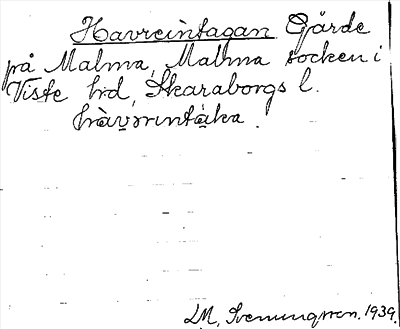 Havreintagan Gärde
på Malma, Malma socken i
Viste hrd, Skaraborgs l.
hàvrrintàka.
LM, Svenungsson. 1939.